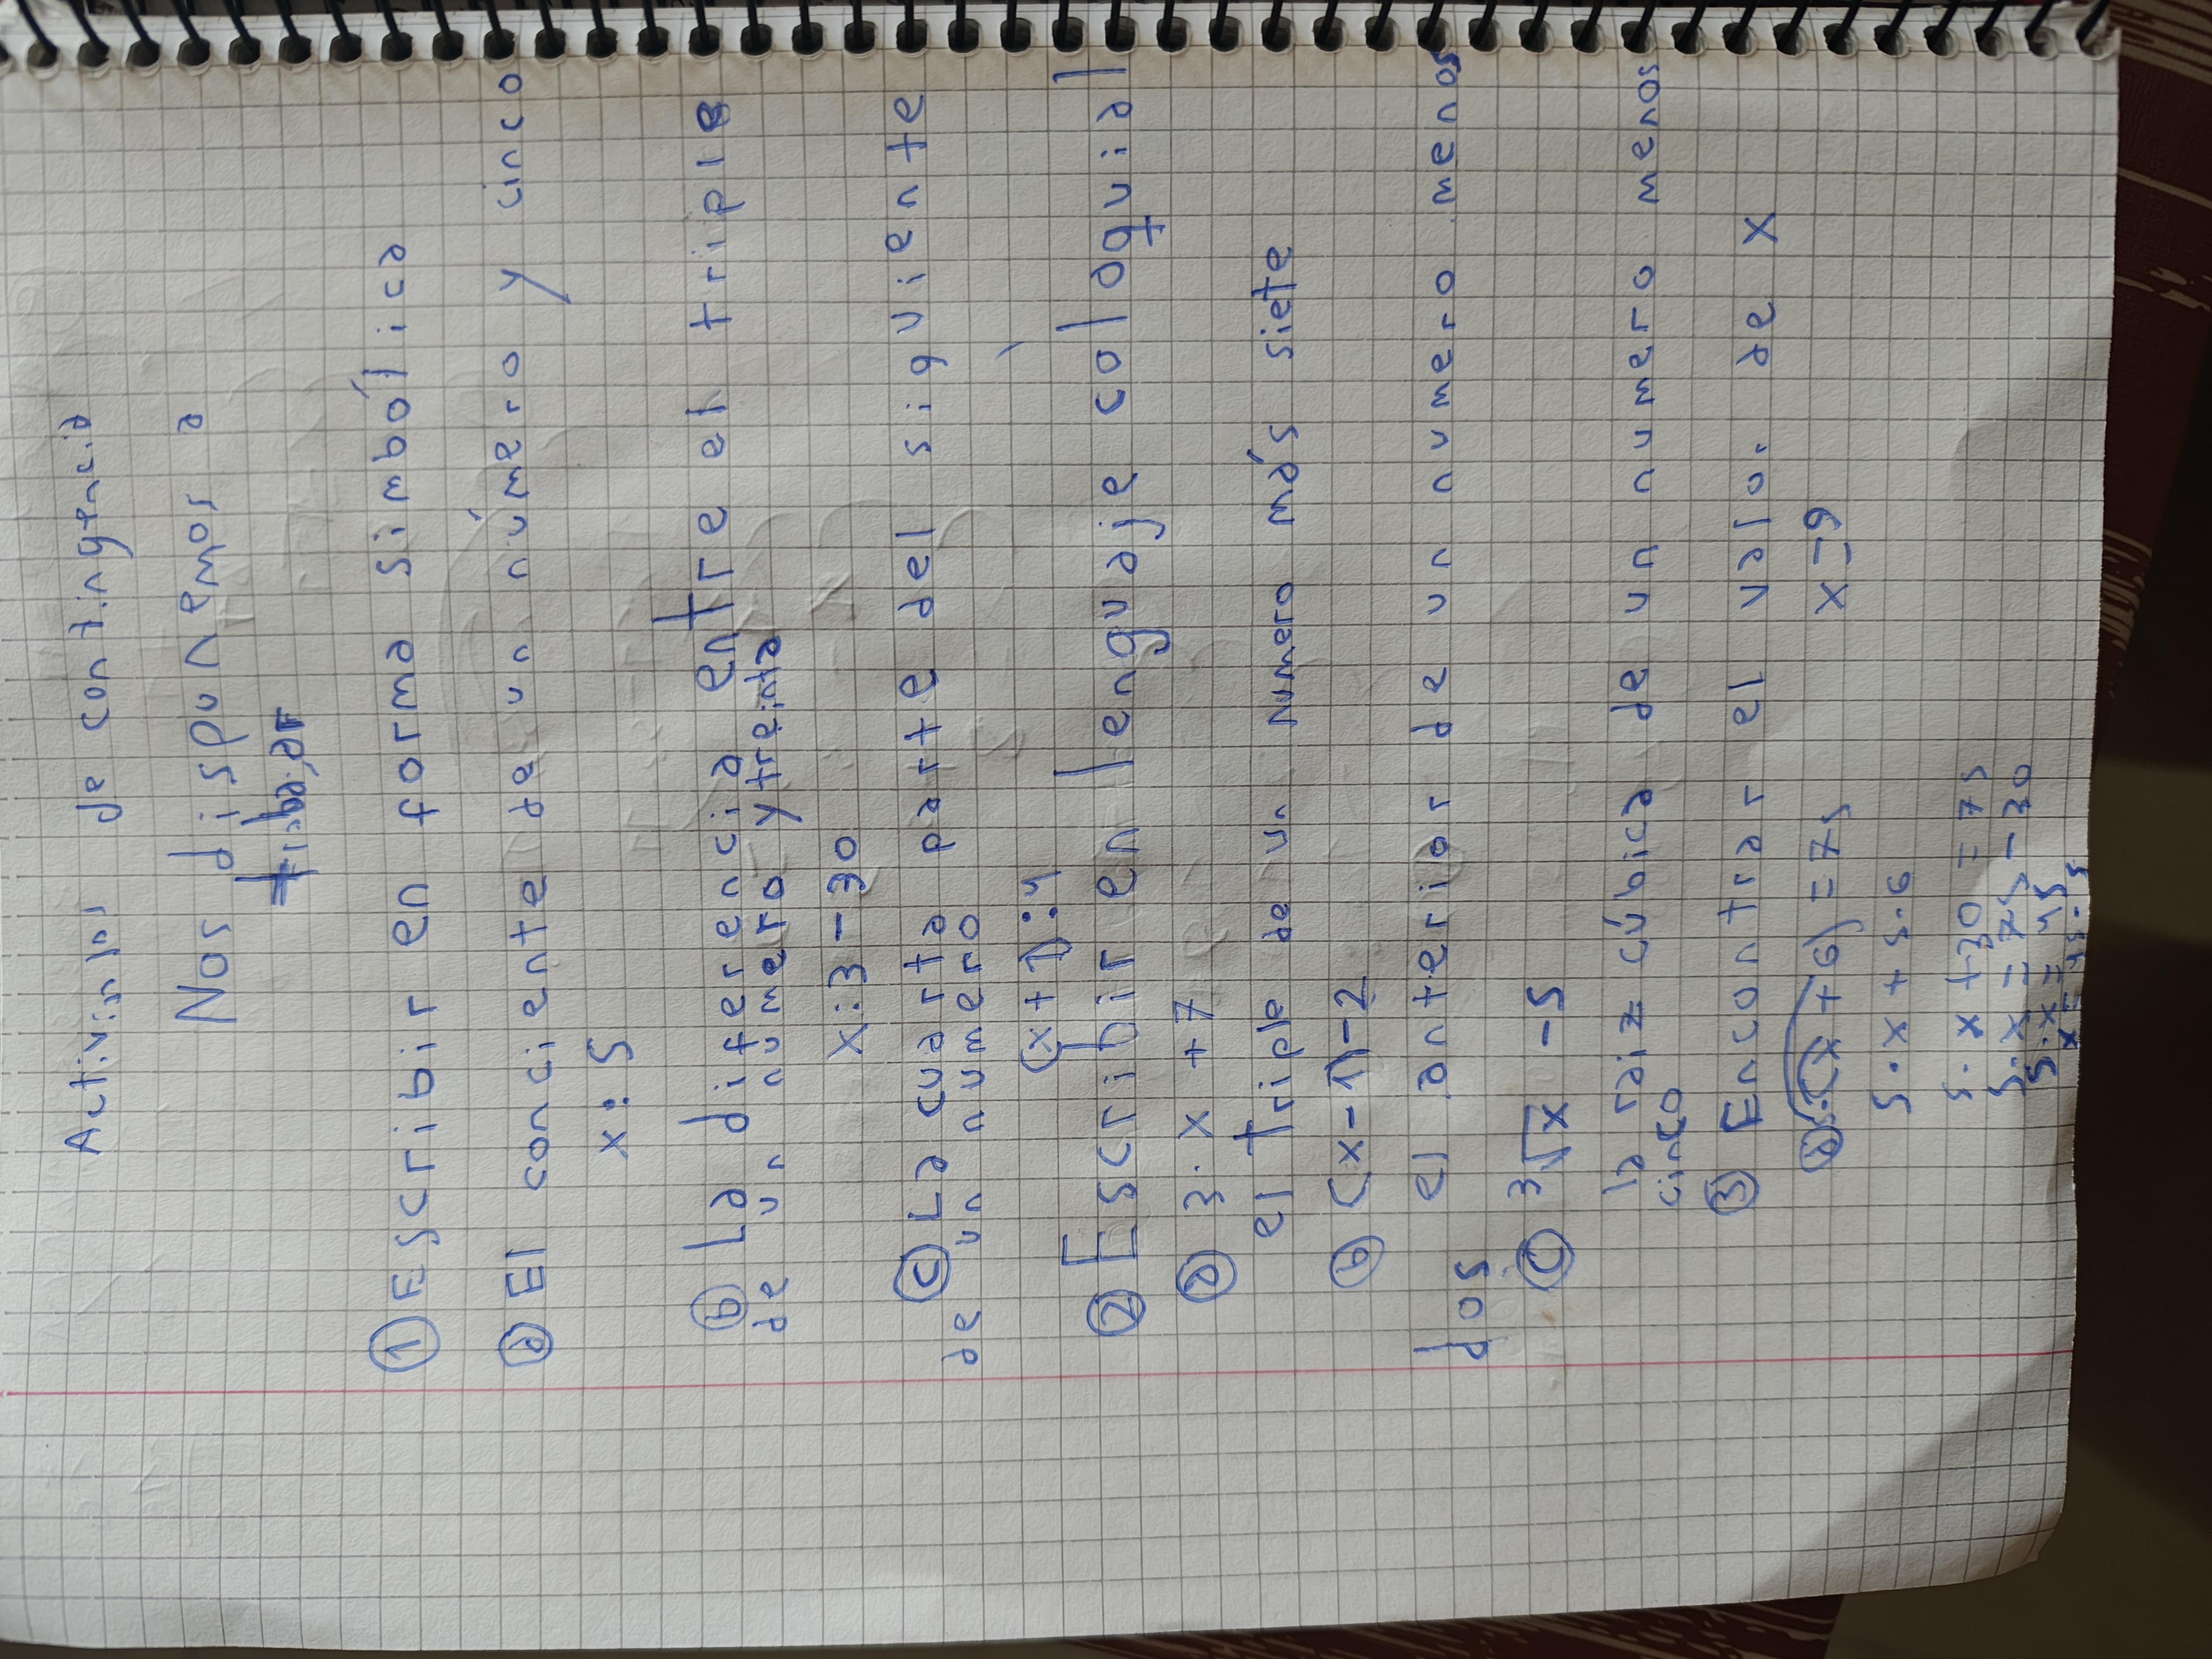 Activin los de contingencia
Nos dispunemos a
trabajar
① Escribir en forma simbólica
ⓐ El conciente de un número y cinco
x:5
ⓑ La diferencia entre el triple
de un numero y treinta
x:3-30
ⓒ La cuarta parte del siguiente
de un numero
(x+1):4
② Escribir en lenguaje coloquial
ⓐ 3.x+7
el triple de un numero más siete
ⓑ (x-1)-2
el anterior de un numero menos
dos
ⓒ 3√x -5
la raiz cúbica de un numero menos
cinco
③ Encontrar el valor de x
ⓐ 5.(x+6)=75 x=9
5.x+5.6
5.x+30=75
5.x=75-30
5.x=45
x=45:5